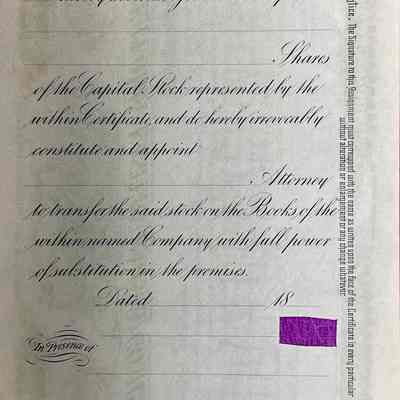 Shares
of the Capital Stock represented by the
within Certificate, and do hereby irrevocably
constitute and appoint
Attorney
to transfer the said stock on the Books of the
within named Company with full power
of substitution in the premises.
Dated 18
In Presence of
The Signature to this Assignment must correspond with the name as written upon the face of the Certificate in every particular
without alteration or enlargement or any change whatever.